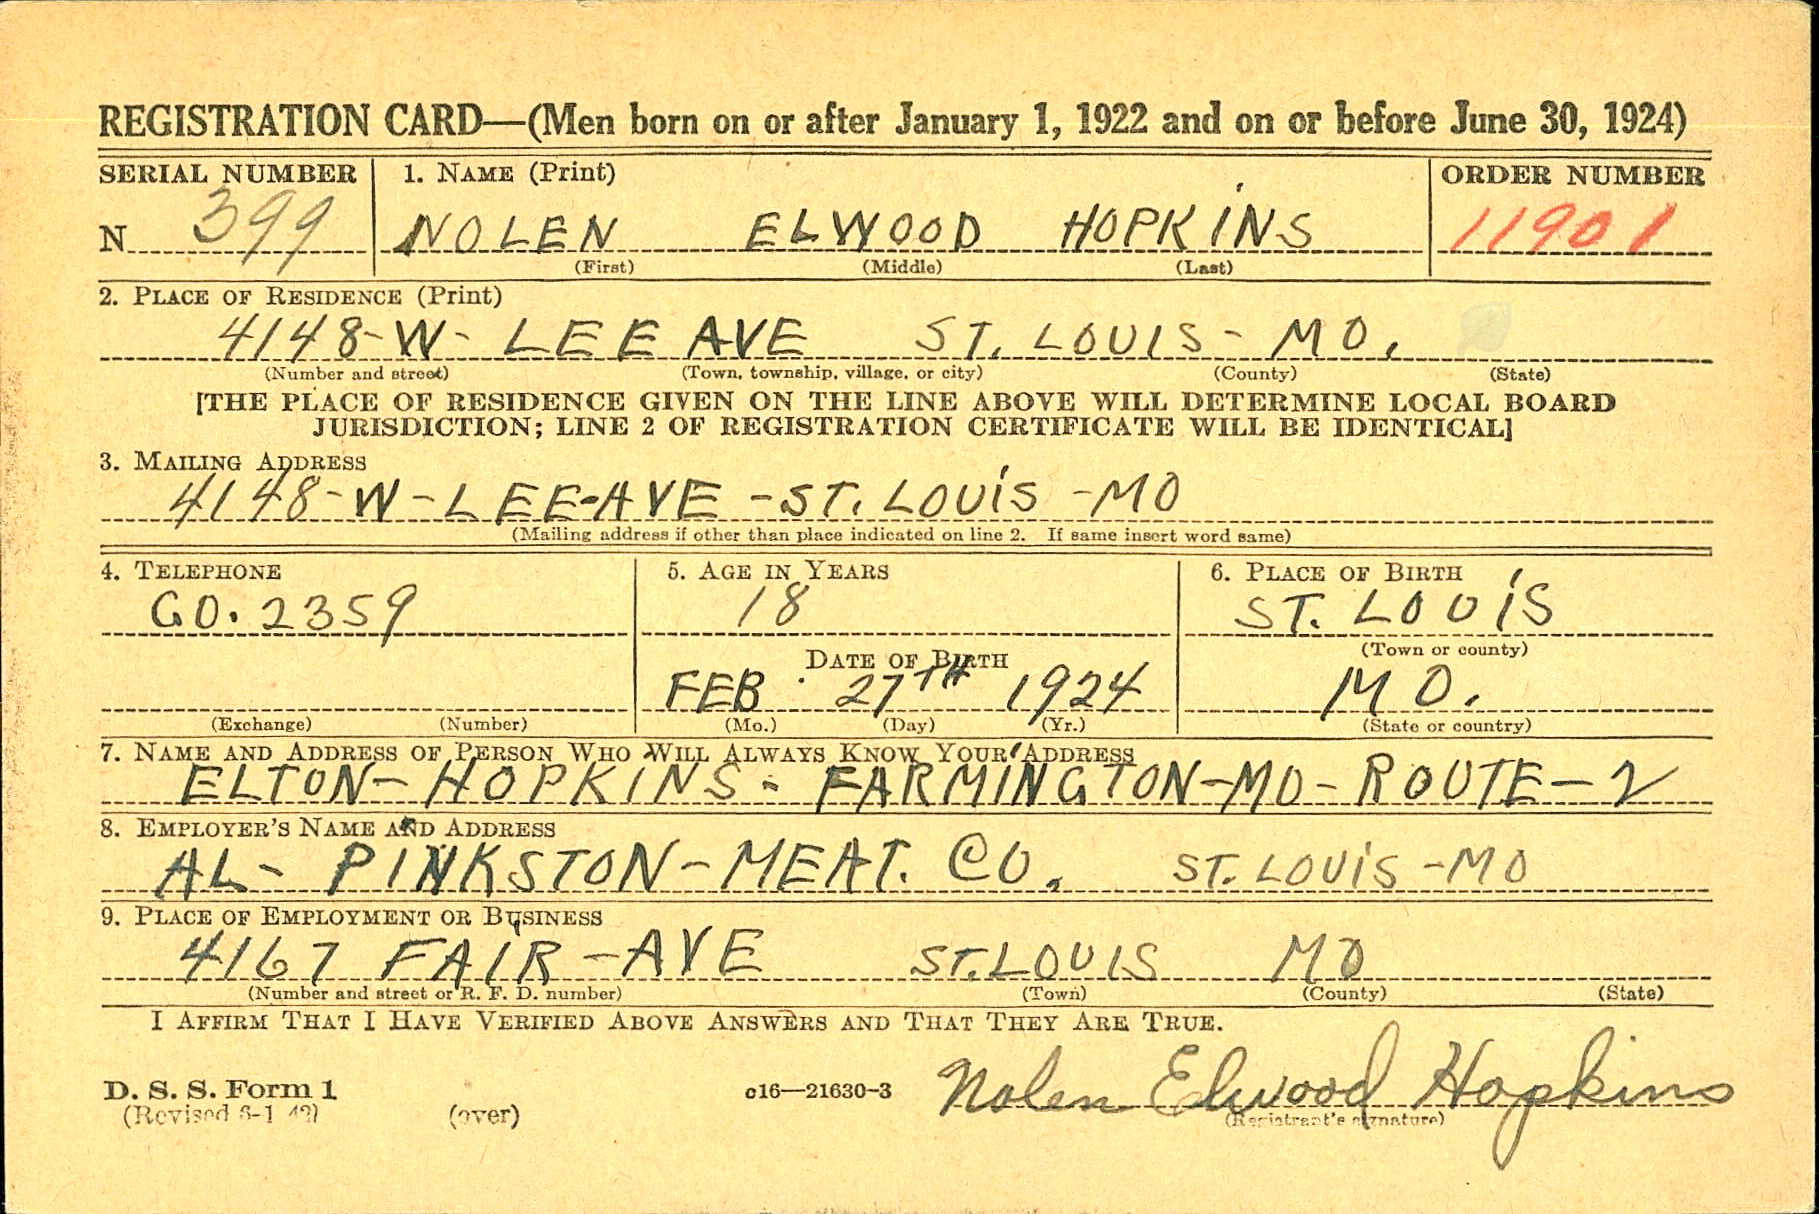 REGISTRATION CARD—(Men born on or after January 1, 1922 and on or before June 30, 1924)
SERIAL NUMBER 1. NAME (Print) ORDER NUMBER
N 399 NOLEN ELWOOD HOPKINS 11901
(First) (Middle) (Last)
2. PLACE OF RESIDENCE (Print)
4148-W- LEE AVE ST. LOUIS- MO.
(Number and street) (Town, township, village, or city) (County) (State)
[THE PLACE OF RESIDENCE GIVEN ON THE LINE ABOVE WILL DETERMINE LOCAL BOARD
JURISDICTION; LINE 2 OF REGISTRATION CERTIFICATE WILL BE IDENTICAL]
3. MAILING ADDRESS
4148-W-LEE-AVE -ST. LOUIS -MO
(Mailing address if other than place indicated on line 2. If same insert word same)
4. TELEPHONE 5. AGE IN YEARS 6. PLACE OF BIRTH
GO. 2359 18 ST. LOUIS
DATE OF BIRTH (Town or county)
FEB 27TH 1924 MO.
(Exchange) (Number) (Mo.) (Day) (Yr.) (State or country)
7. NAME AND ADDRESS OF PERSON WHO WILL ALWAYS KNOW YOUR ADDRESS
ELTON- HOPKINS- FARMINGTON-MO- ROUTE-2
8. EMPLOYER'S NAME AND ADDRESS
AL- PINKSTON-MEAT. CO. ST. LOUIS -MO
9. PLACE OF EMPLOYMENT OR BUSINESS
4167 FAIR-AVE ST. LOUIS MO
(Number and street or R. F. D. number) (Town) (County) (State)
I AFFIRM THAT I HAVE VERIFIED ABOVE ANSWERS AND THAT THEY ARE TRUE.
D. S. S. Form 1 c16—21630-3 Nolen Elwood Hopkins
(Revised 6-1 42) (over) (Registrant's signature)